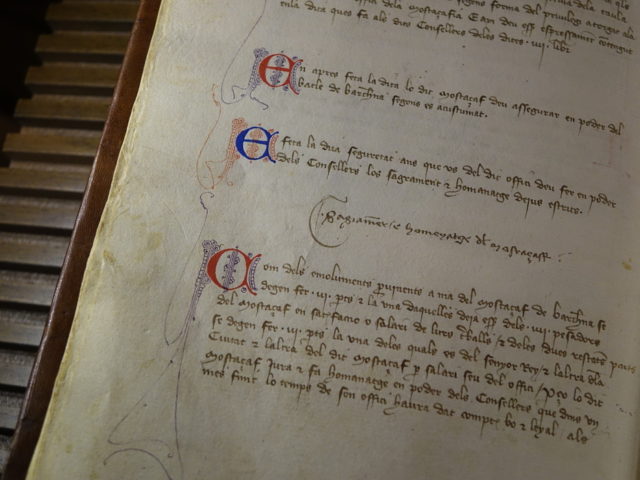 segons forma del privilegi atorgat als
offici dela mostaçafia E açi deu esser expressament contengut
cula dita ques fa als dits Consellers deles dites .vij. libr
En apres feta la dita le dit mostaçaf deu assegurar en poder del
batle de barchna segons es acustumat.
E feta la dita seguretat ans que us del dit offici deu fer en poder
dels Consellers los sagrament & homanatge dejus escrits.
Sagrament e homenatge del mostaçaff
Com dels emoluments pvinents a ma del mostaçaf de barchna se
degen fer .vj. pts & la una daquelles deja esser dels .vj. pesadors
del mostaçaf en satisfaccio o salari de lurs treballs & deles dues restants parts
se degen fer .vj. pts la una deles quals es del senyor Rey & laltra dla
Ciutat & laltra del dit mostaçaf p salari seu del offici / Pço lo dit
mostaçaf jura & fa homanatge en poder dels Consellers que dins un
mes finit lo temps de son offici haura dat compte bo & leyal als